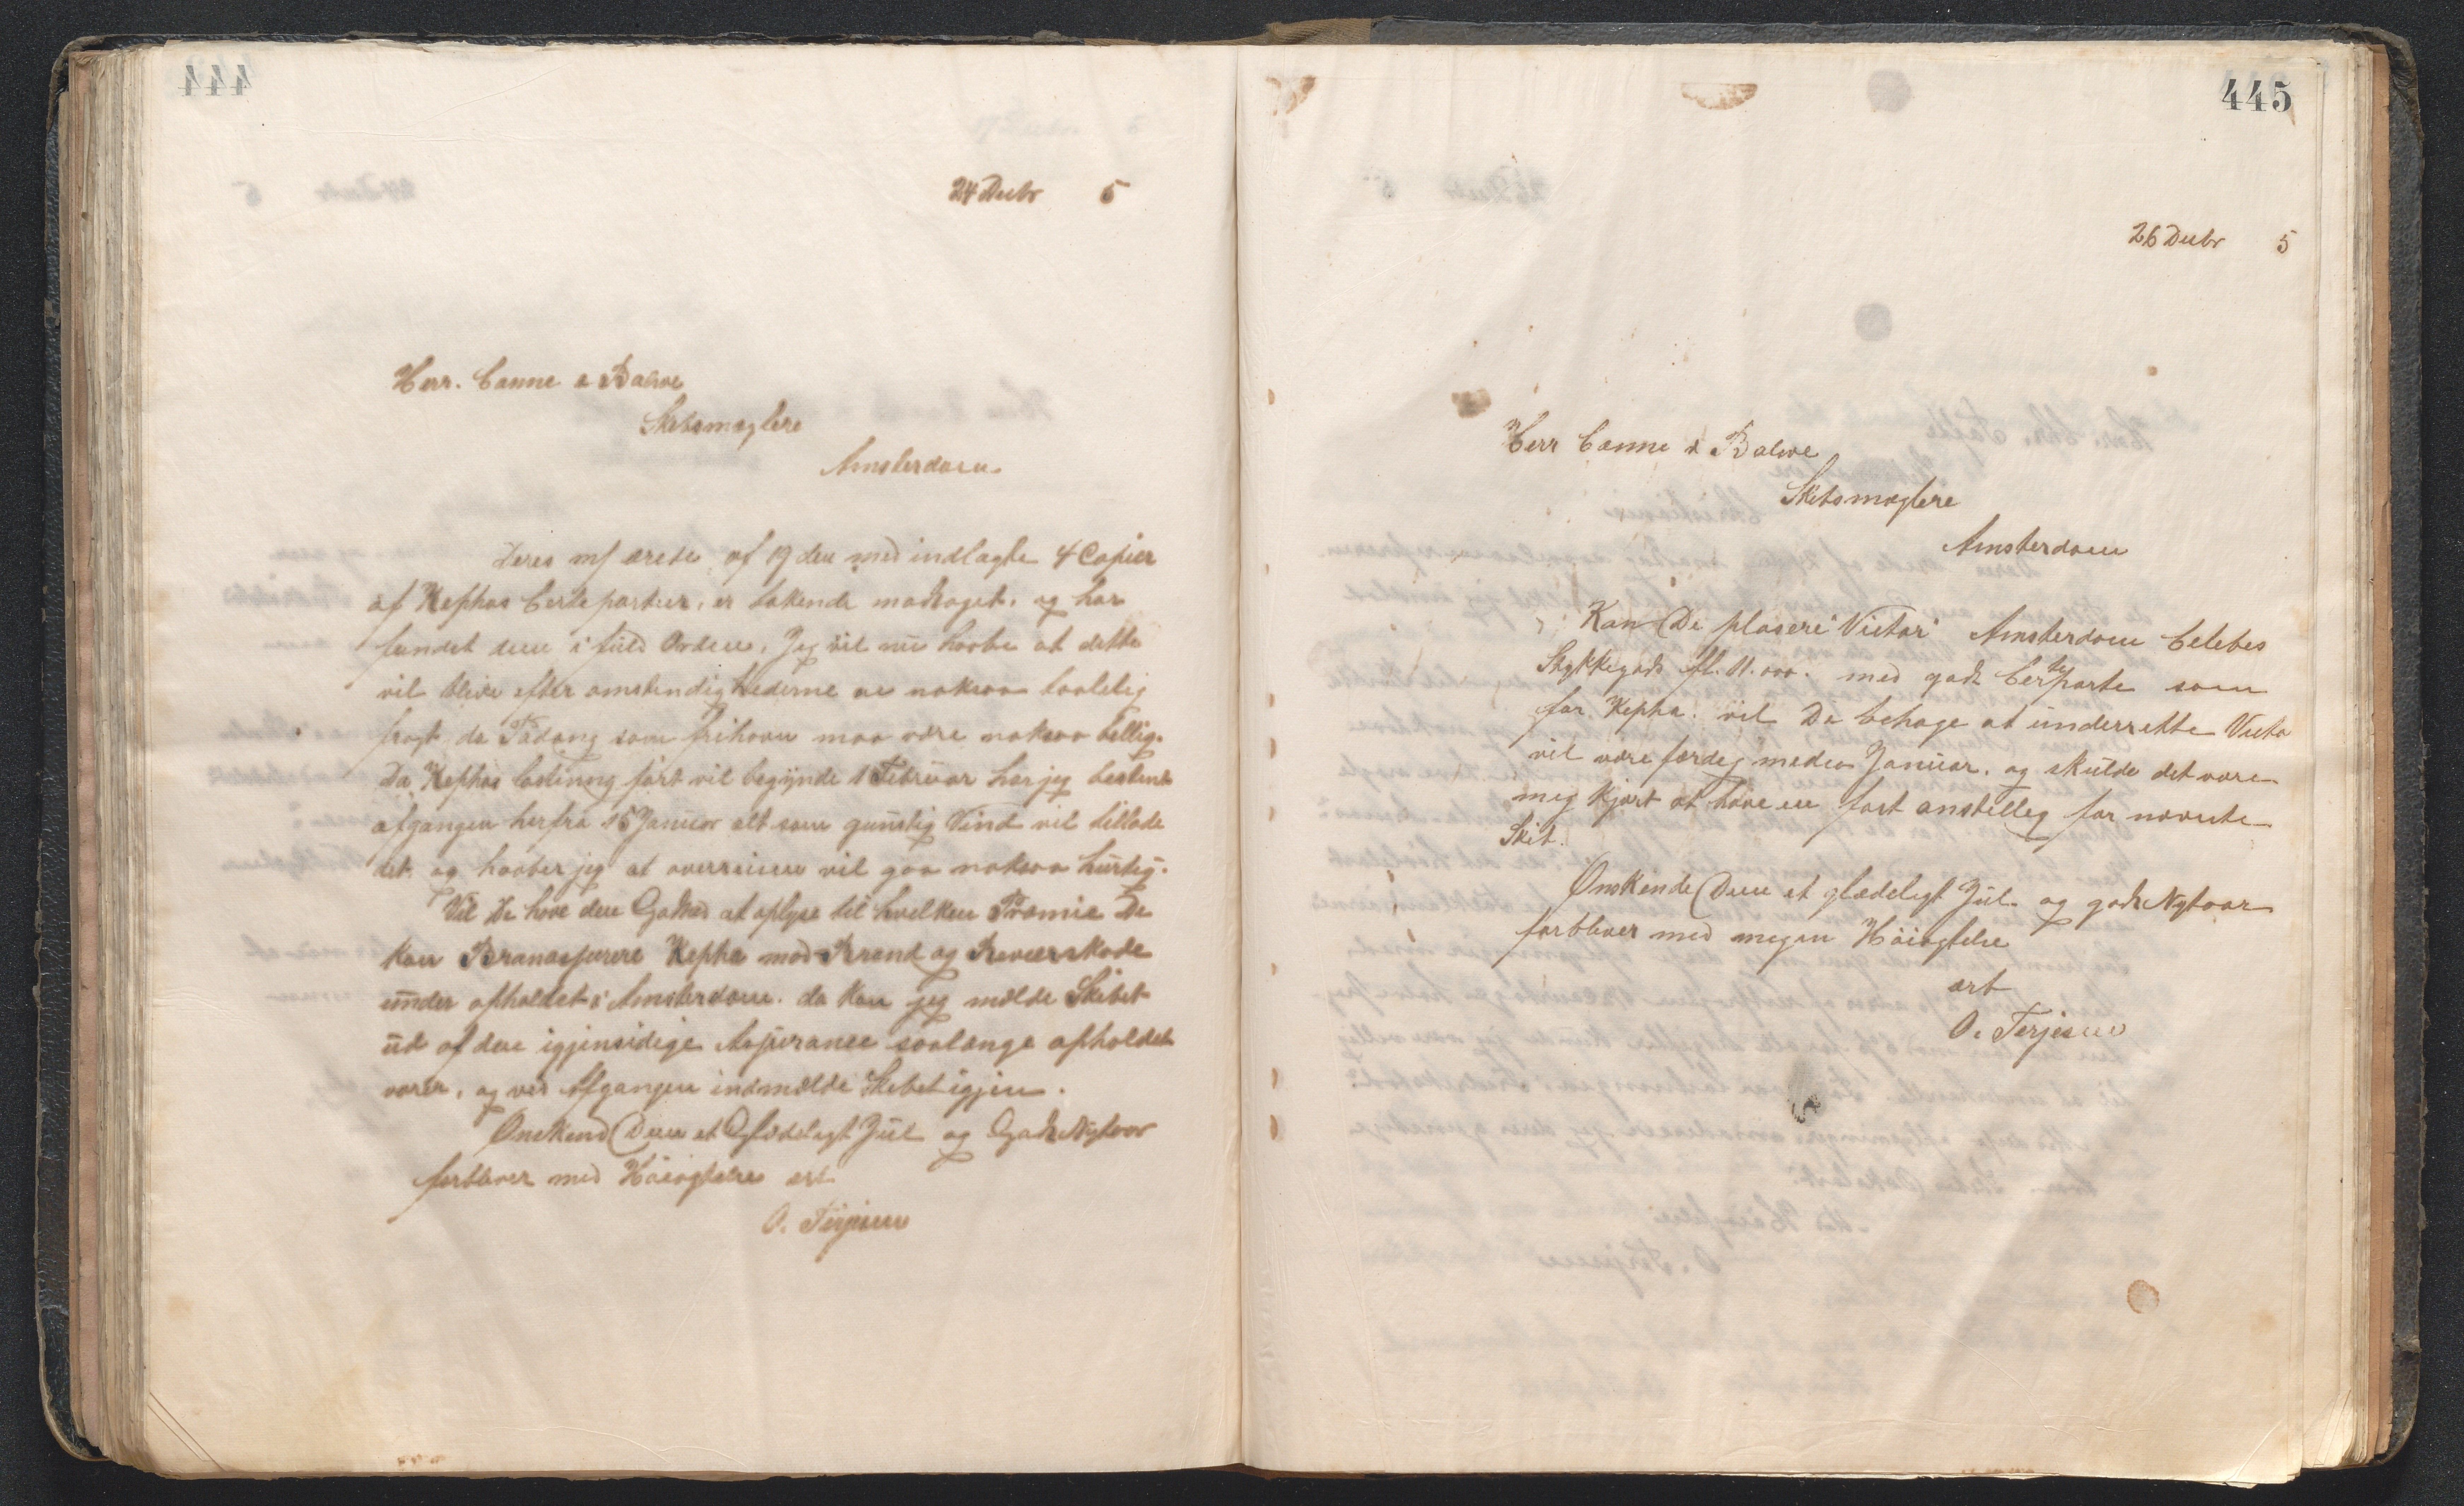 444
24 Decbr 5
Herr. Canne & Balwe
Skibsmæglere
Amsterdam
Deres mf ærede af 19 den med indlagte 4 Copier
af Kephas Certepartier, er takende modtaget, og har
fundet dem i fuld Orden. Jeg vil nu haabe at dette
vil blive efter omstendighederne en noksaa taalelig
fragt, da Padang som frihavn maa være noksaa billig.
Da Kephas ladning först vil begynde 1 Februar har jeg bestemt
afgangen herfra 15 Januar alt som gunstig Vind vil tillade
det, og haaber jeg at overreisen vil gaa noksaa hurtig.
Vil De have den Godhed at oplyse til hvilken Præmie De
kan Brandassurere Kepha mod Brand og
under opholdet i Amsterdam. da kan jeg mælde Skibet
ud af den igjensidige Assurance saalænge opholdet
varer, og ved Afgangen indmælde Skibet igjen.
Önskend Dem et Glædeligt Jul og Godt Nytaar
forbliver med Höiagtelse ært
O. Terjesen
445
26 Decbr 5
Herr Canne & Balwe
Skibsmæglere
Amsterdam
Kan De plasere "Victor" Amsterdam Celebes
Stykkegods fl. 11.000. med godt Certeparte som
for Kepha. vil De behage at underrette Victo
vil være færdig meden Januar. og skulde det være
mig kjært at have en fast anstilleg for nævnte
Skib.
Önskende Dem et glædeligt Jul og godt Nytaar
forbliver med megen Höiagtelse
ært
O. Terjesen